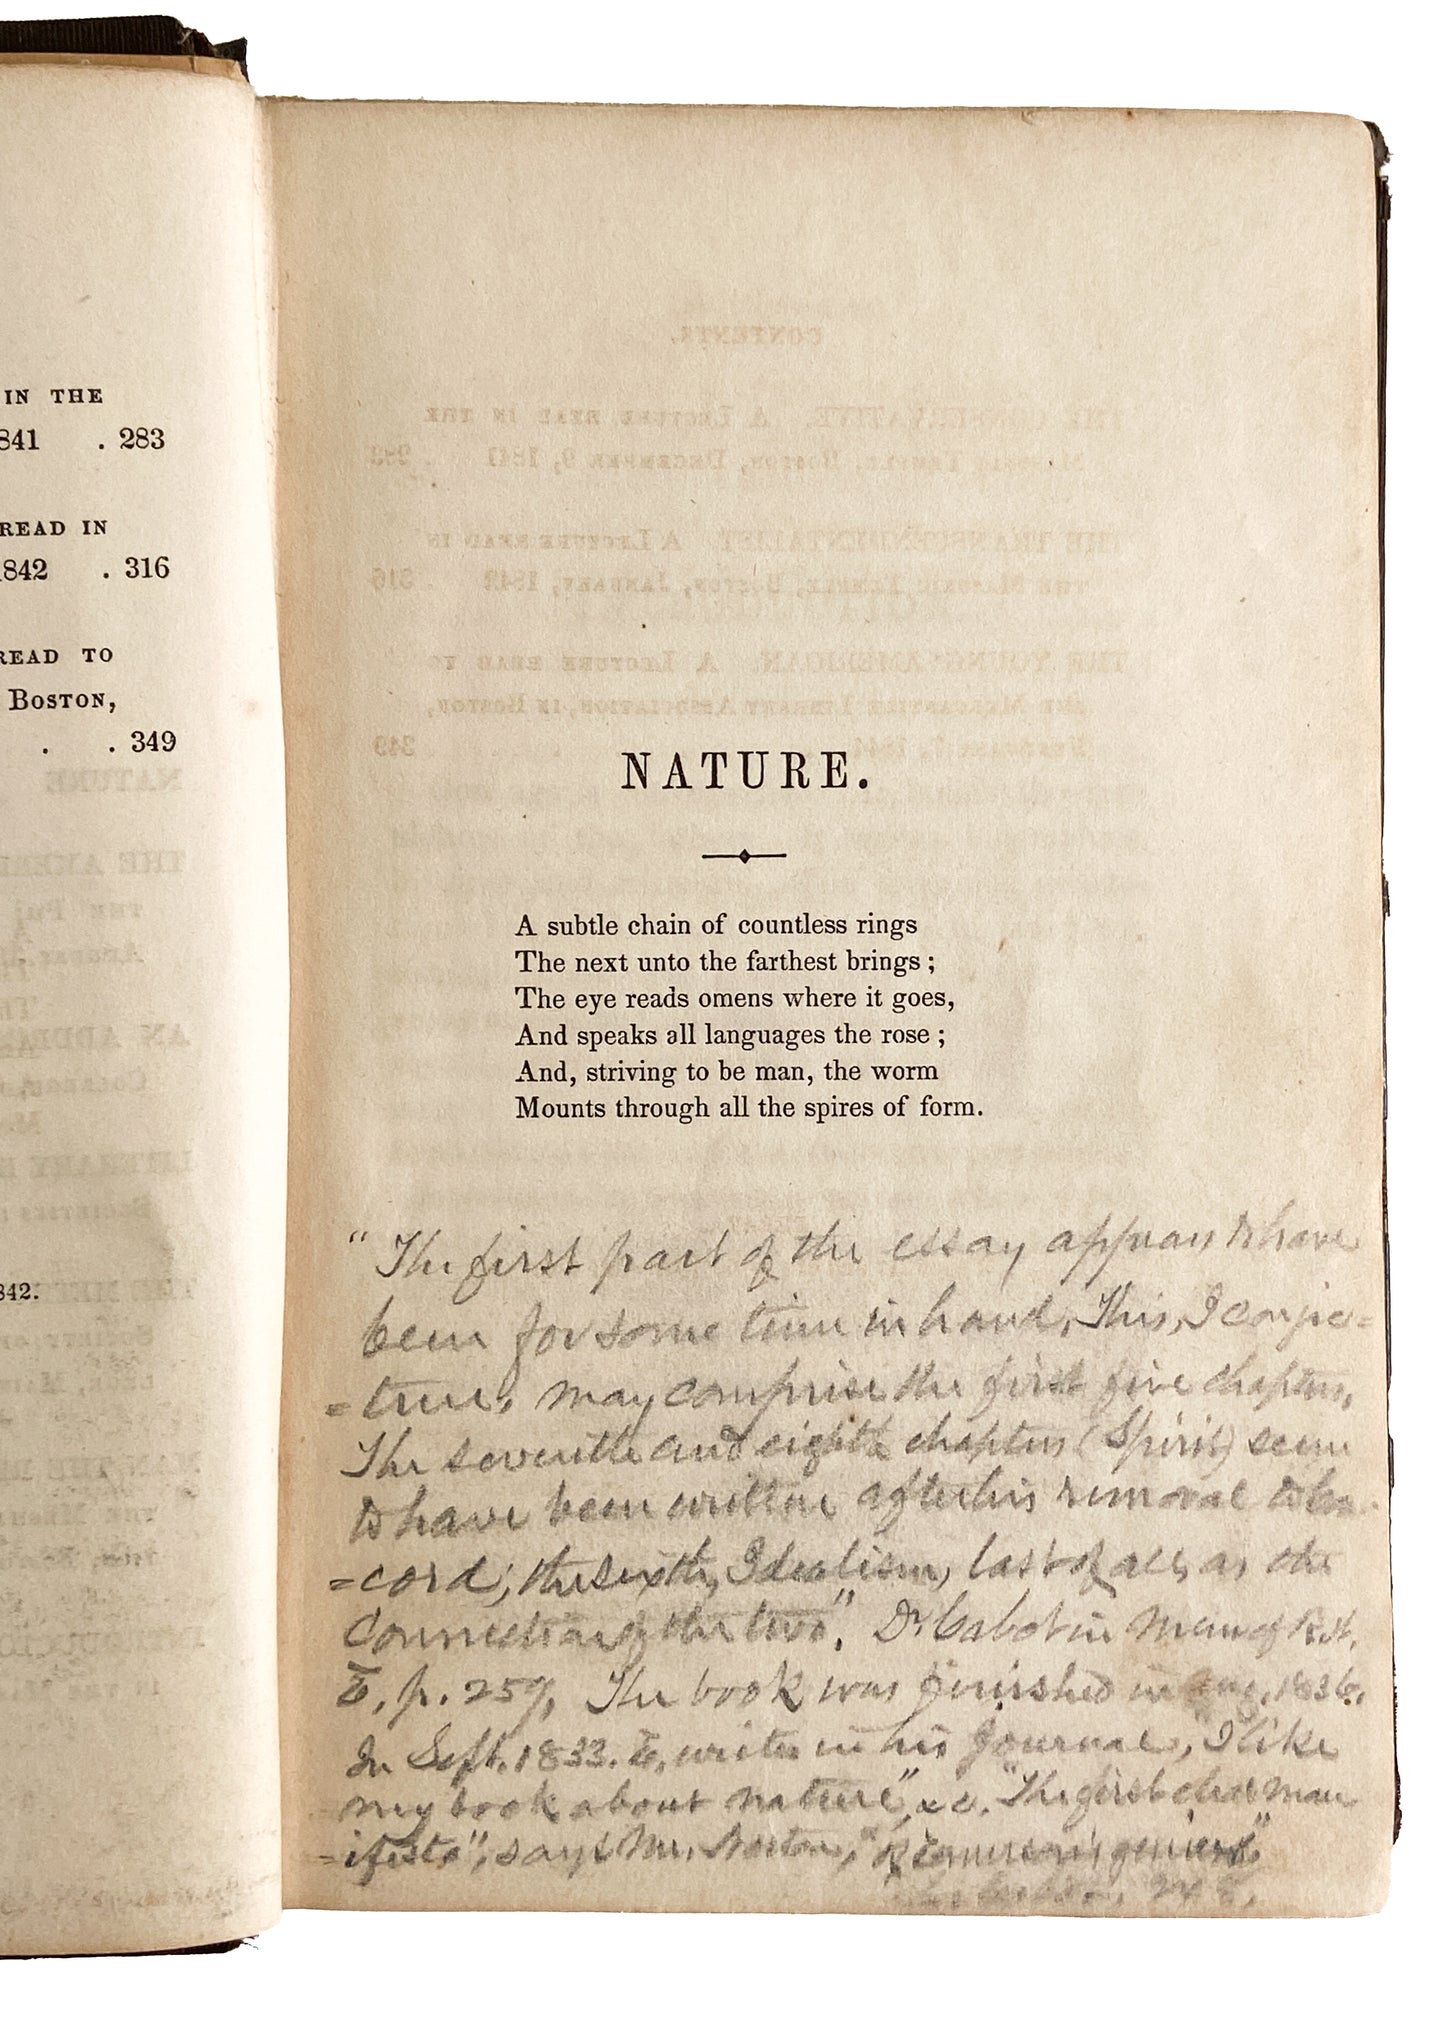 IN THE
841 . 283
READ IN
1842 . 316
READ TO
BOSTON,
. . 349
842.
NATURE.
A subtle chain of countless rings
The next unto the farthest brings ;
The eye reads omens where it goes,
And speaks all languages the rose ;
And, striving to be man, the worm
Mounts through all the spires of form.
" The first part of the essay appears to have
been for some time in hand, This, I conjec=
=ture, may comprise the first five chapters,
The seventh and eighth chapters (Spirit) seem
to have been written after his removal to Con-
=cord; the sixth, Idealism, last of all, as the
Connection of the two". Dr Cabot in Mem of R.W.
E, p. 259, The book was finished in Aug, 1836.
In Sept. 1833. E, writes in his Journal, "I like
my book about nature", &c. "The first clear man
=ifesto", says Mr. Norton, "of Emerson's genius"
248.